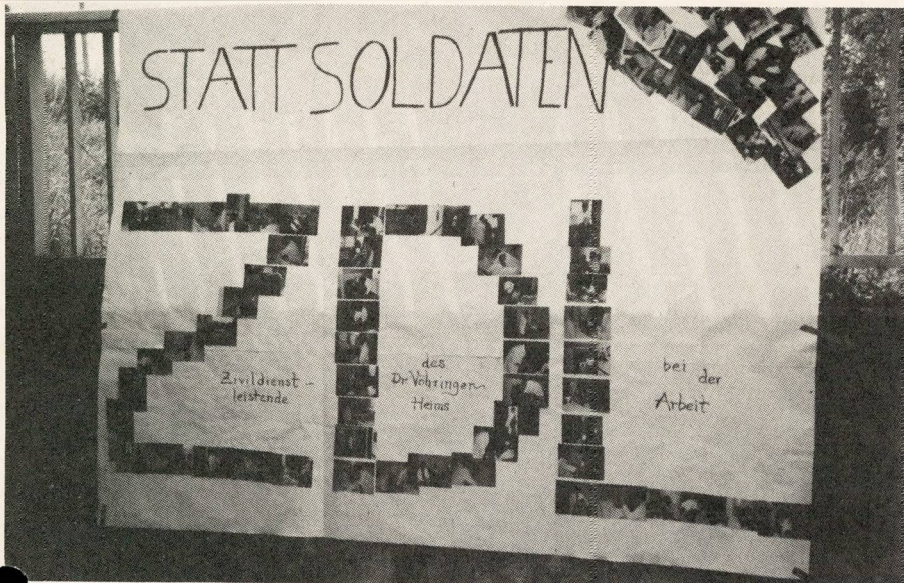 STATT SOLDATEN
ZDL
Zivildienst-
leistende
des
Dr Vöhringer-
Heims
bei der
Arbeit